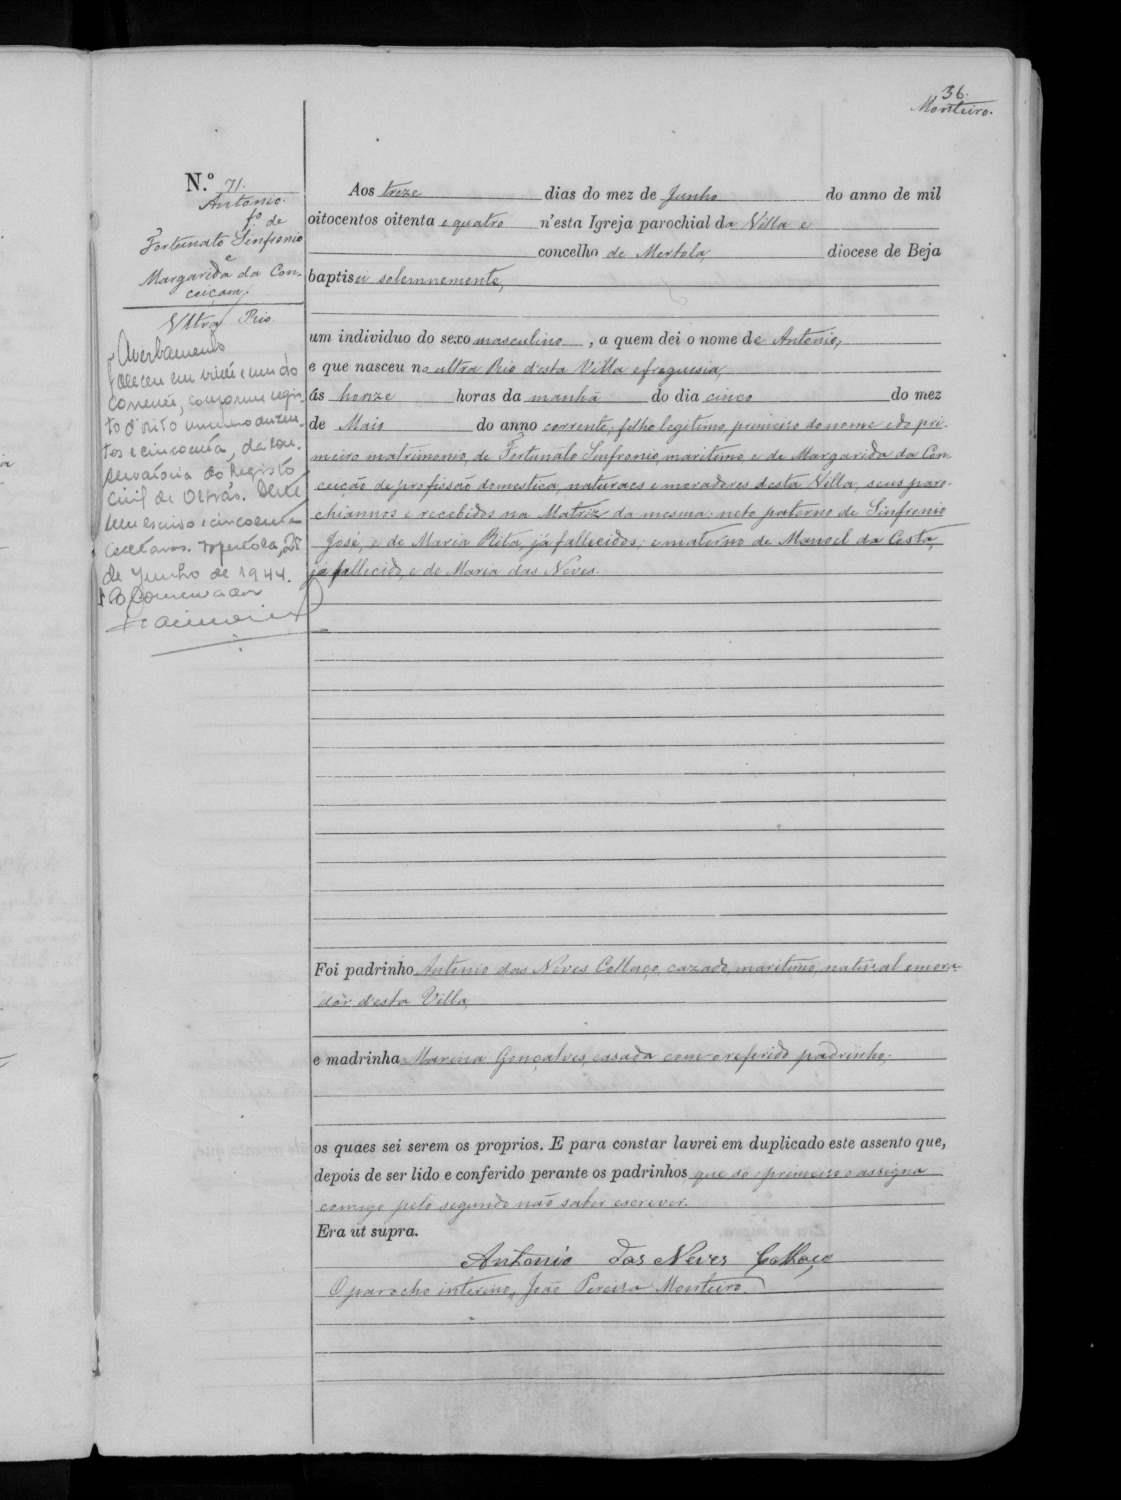 36.
Monteiro.
N.º 71.
Antonio.
fº de
Fortunato Sinfronio
e
Margarida da Con-
ceiçam.
Ultra Rio.
Averbamento
Faleceu em vinte e um do
corrente, conforme regis-
to d'obito numero duzen-
tos e cincoenta, da Con-
servatoria do Registo
Civil de Deste
um escudo e cincoenta
centavos. Mertola, 28
de Junho de 1944.
O Conservador
Aos treze dias do mez de Junho do anno de mil
oitocentos oitenta e quatro n'esta Igreja parochial da Villa e
concelho de Mertola, diocese de Beja
baptisei solemnemente,
um individuo do sexo masculino, a quem dei o nome de Antonio,
e que nasceu no ultra Rio d'esta Villa e freguesia,
ás honze horas da manhã do dia cinco do mez
de Maio do anno corrente, filho legitimo, primeiro do nome e do pri-
meiro matrimonio, de Fortunato Sinfronio, maritimo, e de Margarida da Con-
ceição de profissão domestica, naturaes e moradores desta Villa, seus paro-
chiannos e recebidos na Matriz da mesma: neto paterno de Sinfronio
José, e de Maria Rita, já fallecidos; e materno de Manoel da Costa,
já fallecido, e de Maria das Neves.
Foi padrinho Antonio das Neves Collaço, cazado, maritimo, natural e mora-
dor d'esta Villa,
e madrinha Marcia Gonçalves, casada com o referido padrinho,
os quaes sei serem os proprios. E para constar lavrei em duplicado este assento que,
depois de ser lido e conferido perante os padrinhos que só o primeiro o assigna
comigo pelo segundo não saber escrever.
Era ut supra.
Antonio das Neves Collaço
O parocho interino, João Pereira Monteiro.